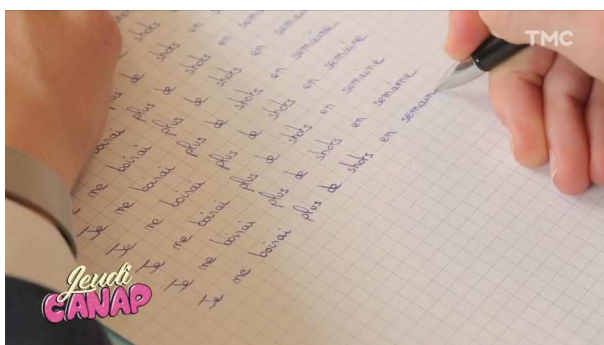 TMC
shots
de shots en sem
plus de shots en semaine
boirai plus de shots en semaine
ne boirai plus de shots en semaine
Je ne boirai plus de shots en semaine
Je ne boirai plus de shots en semaine
Je ne boirai plus de shots en semaine
Je ne boirai plus de shots en semain
Jeudi
CANAP